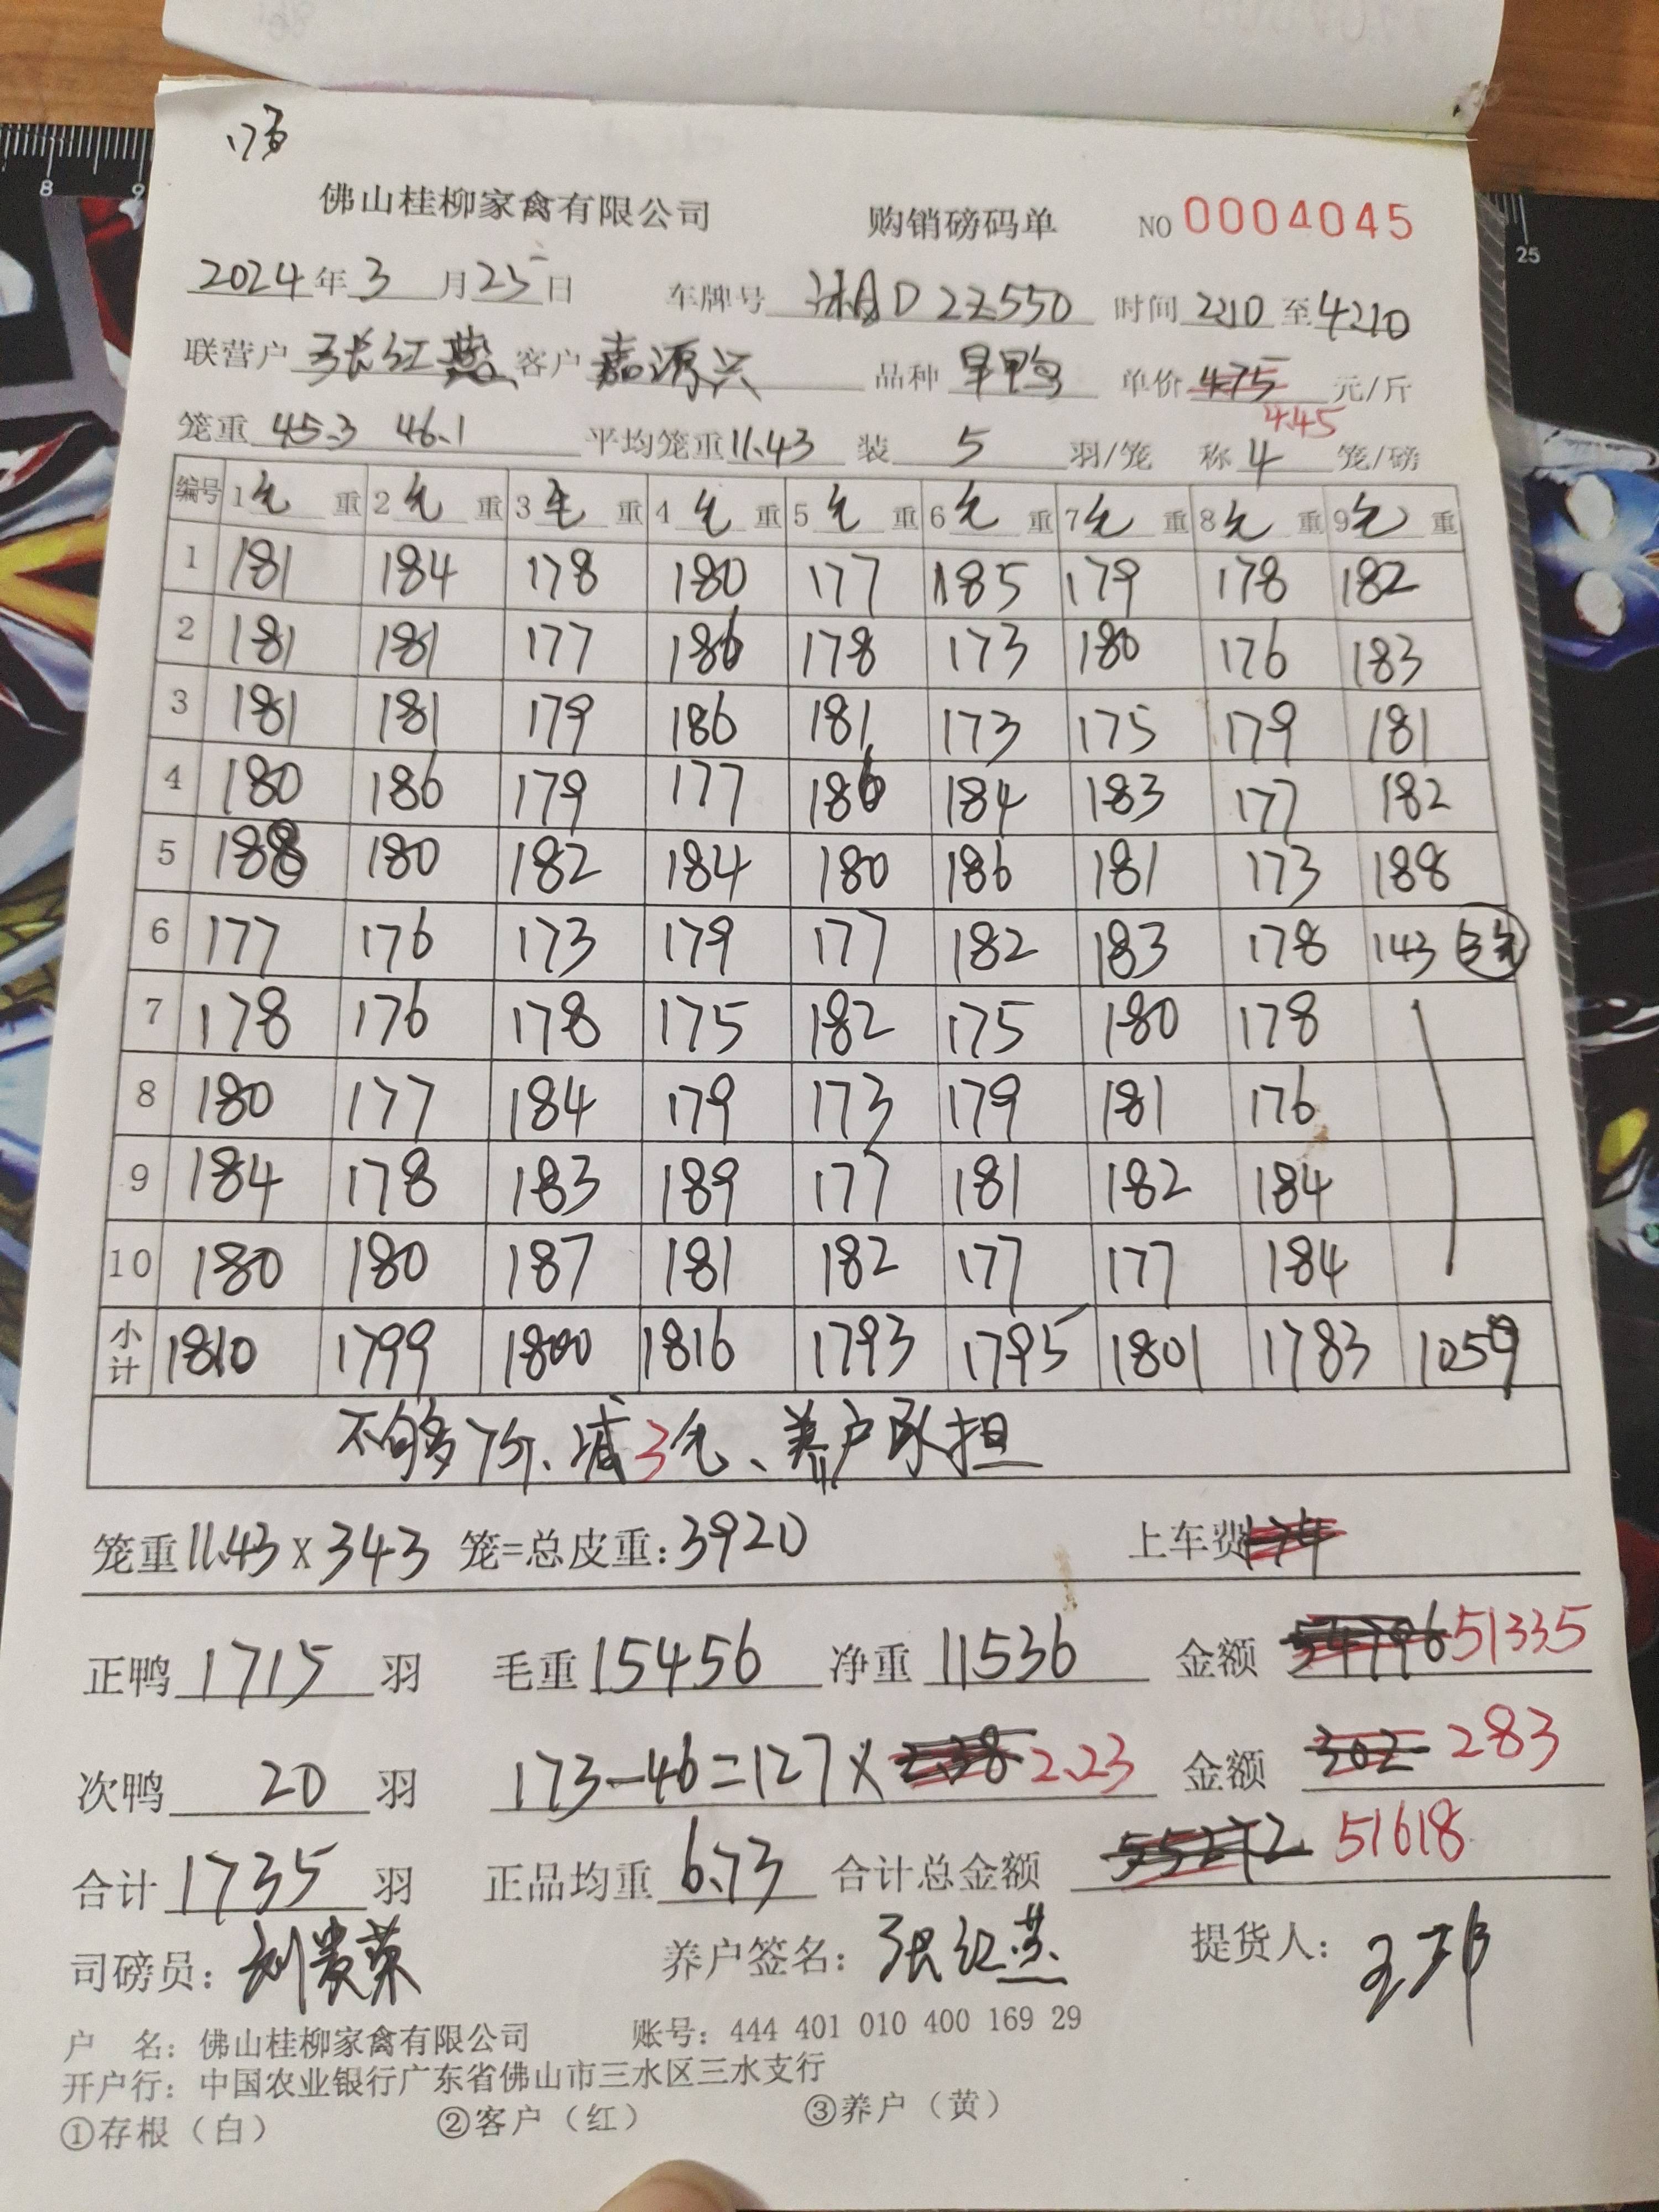 佛山桂柳家禽有限公司 购销磅码单 NO 0004045
2024年3月25日 车牌号 湘D2Z550 时间 2210 至 4210
联营户 张红燕 客户 嘉源兴 品种 旱鸭 单价 4.75 元/斤
4.45
笼重 45.3 46.1 平均笼重 11.43 装 5 羽/笼 称 4 笼/磅
编号 1毛重 2毛重 3毛重 4毛重 5毛重 6毛重 7毛重 8毛重 9毛重
1 181 184 178 180 177 185 179 178 182
2 181 181 177 186 178 173 180 176 183
3 181 181 179 186 181 173 175 179 181
4 180 186 179 177 186 184 183 177 182
5 188 180 182 184 180 186 181 173 188
6 177 176 173 179 177 182 183 178 143
7 178 176 178 175 182 175 180 178
8 180 177 184 179 173 179 181 176
9 184 178 183 189 177 181 182 184
10 180 180 187 181 182 177 177 184
小计 1810 1799 1800 1816 1793 1795 1801 1783 1059
不够7斤、减3毛、养户承担
笼重 11.43 X 343 笼=总皮重: 3920 上车费
正鸭 1715 羽 毛重 15456 净重 11536 金额 54796 51335
次鸭 20 羽 173-46=127× 2.38 2.23 金额 302 283
合计 1735 羽 正品均重 6.73 合计总金额 51618
司磅员: 刘贵荣 养户签名: 张红燕 提货人:
户 名: 佛山桂柳家禽有限公司 账号: 444 401 010 400 169 29
开户行: 中国农业银行广东省佛山市三水区三水支行
①存根（白） ②客户（红） ③养户（黄）